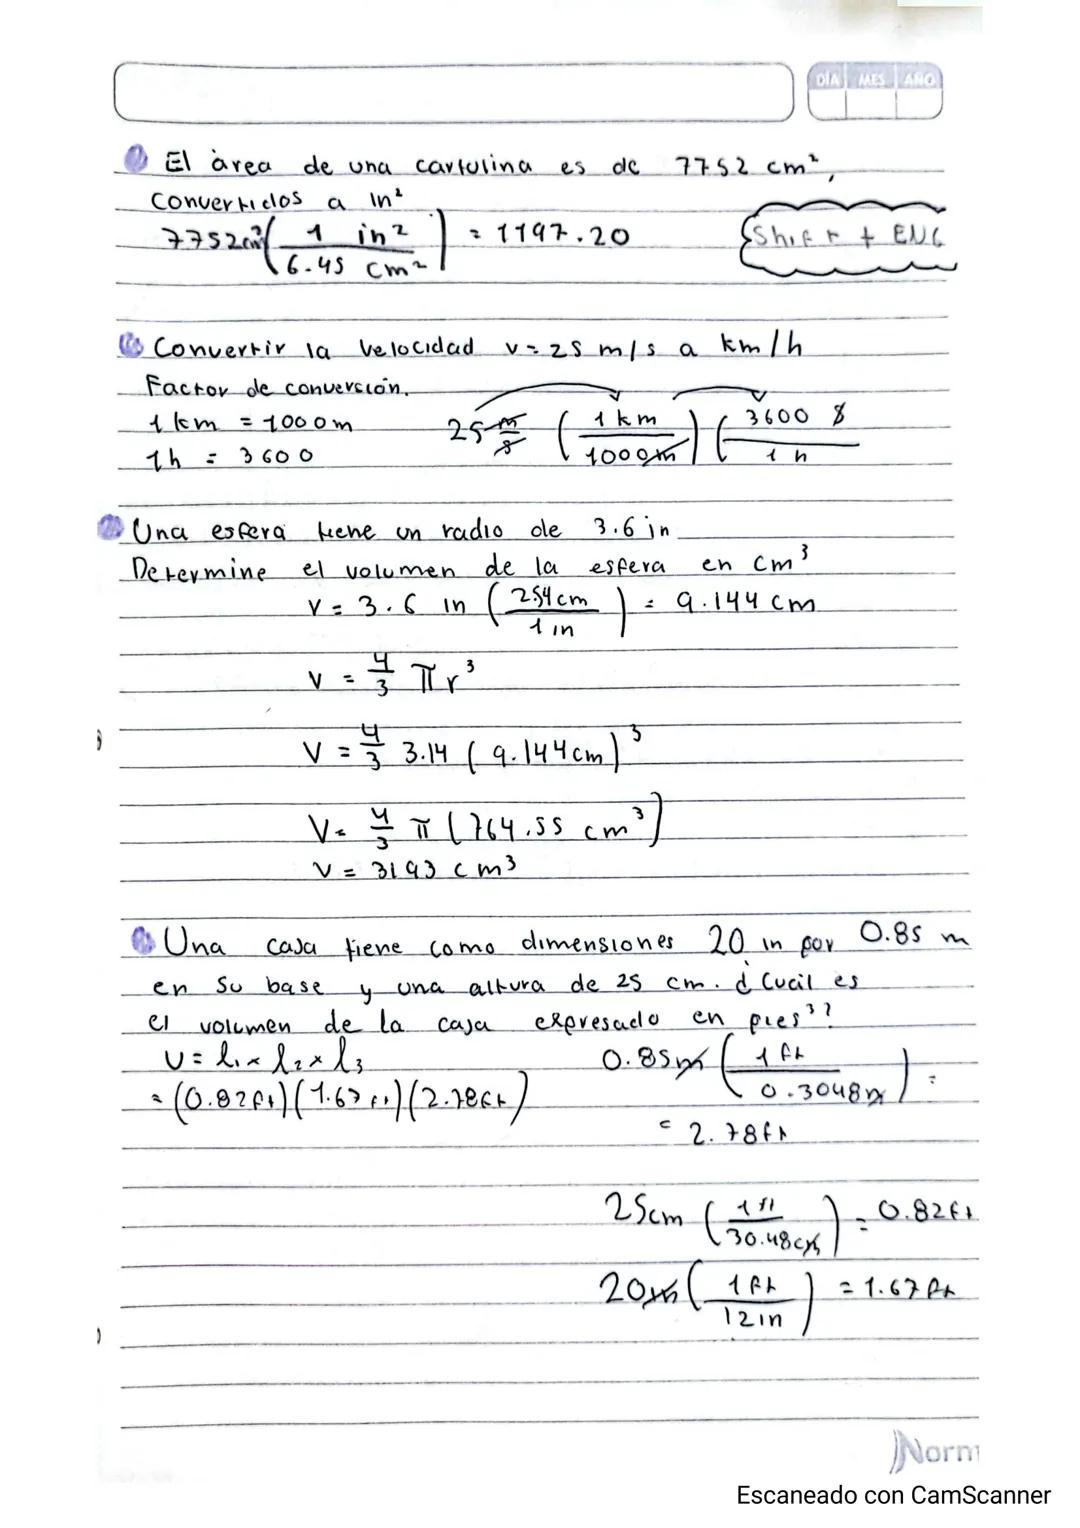 DÍA MES AÑO
El àrea de una cartulina es de 7752 cm²,
Convertidos a in²
7752cm² ( 1 in² / 6.45 cm² ) = 1197.20
Shift + ENG
Convertir la velocidad v = 25 m/s a km/h
Factor de conversión.
1 km = 1000m
1h = 3600
25 m/s ( 1 km / 1000m ) ( 3600 s / 1 h
Una esfera tiene un radio de 3.6 in
Determine el volumen de la esfera en cm³
V = 3.6 in ( 2.54cm / 1 in ) = 9.144 cm
V = 4/3 πr³
V = 4/3 3.14 ( 9.144cm)³
V = 4/3 π (764.55 cm³)
V = 3193 cm³
Una caja tiene como dimensiones 20 in por 0.85 m
en su base y una altura de 25 cm. ¿Cuál es
el volumen de la caja expresado en pies³?
V = l₁ x l₂ x l₃
= (0.82ft)(1.67ft)(2.78ft)
0.85m ( 1 ft / 0.3048m ) =
= 2.78ft
25cm ( 1 ft / 30.48cm ) = 0.82ft
20in ( 1 ft / 12in ) = 1.67 ft
Norm
Escaneado con CamScanner